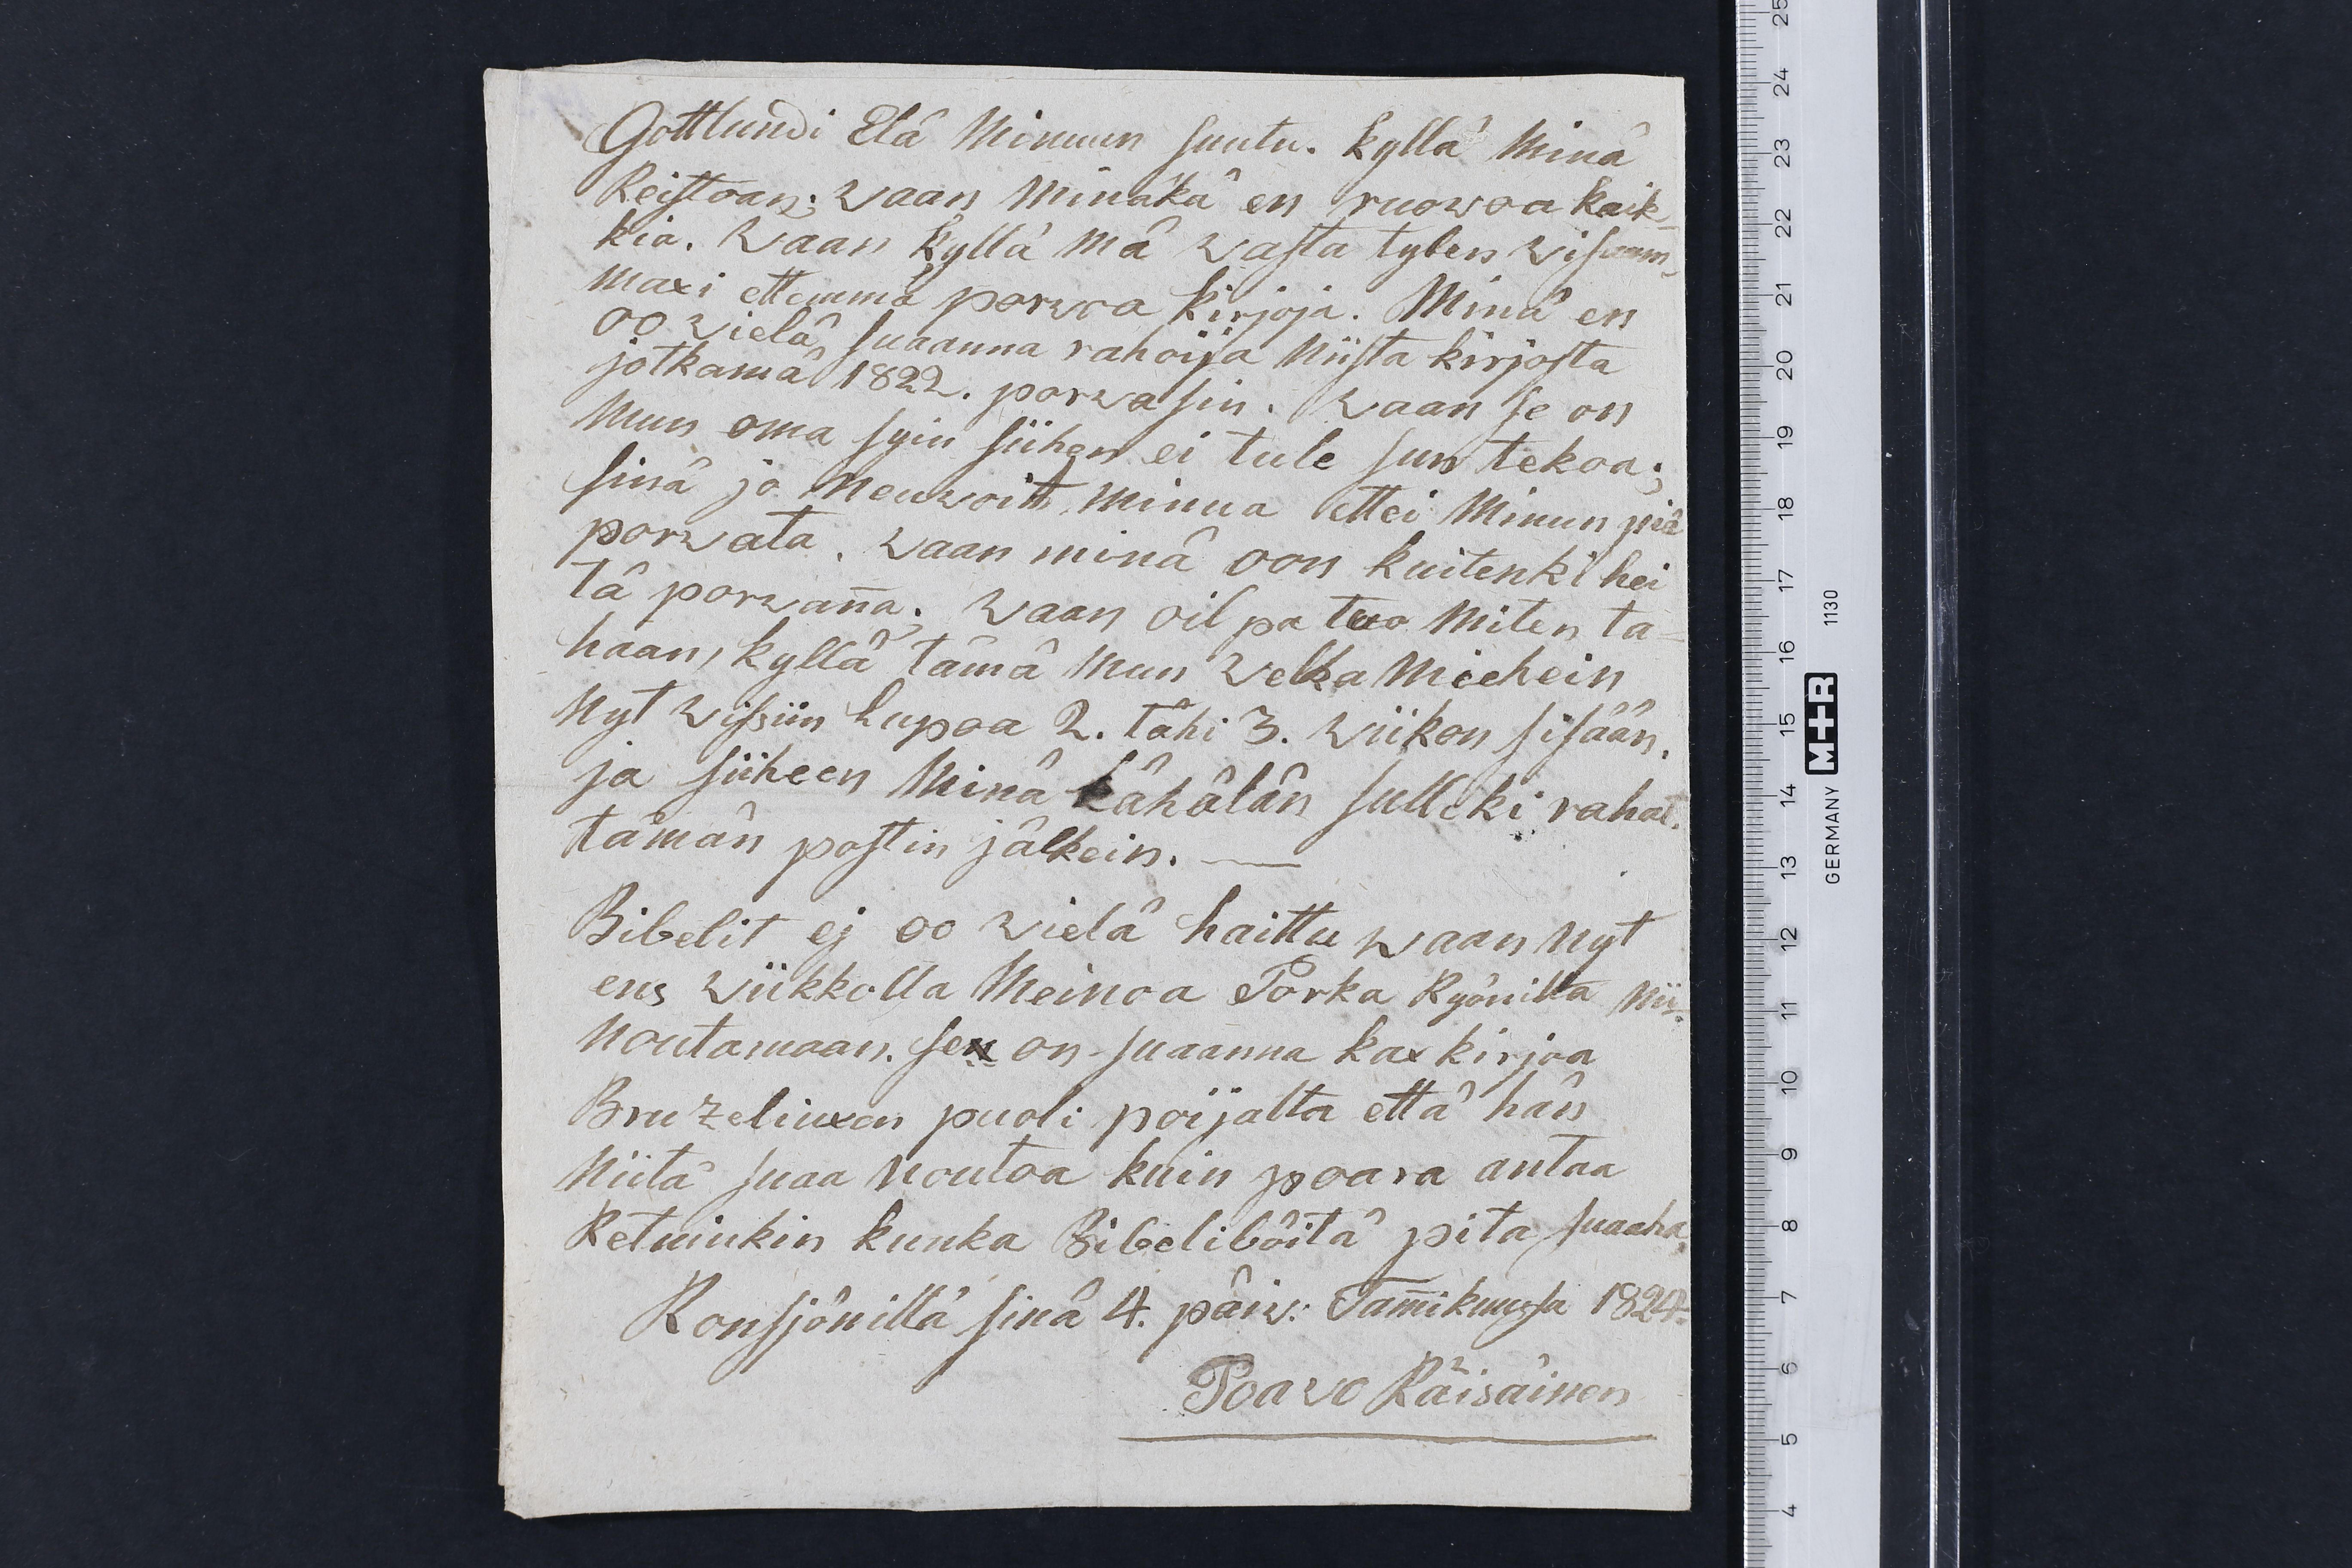 Gottlundi Elä Minuun suutu. kyllä Minä
Reistoan; waan Minäkä en ruowoa kaik-
kia. waan kyllä mä wasta tylen wisaam-
maxi ettemmä porwoa kirjoja. Minä en
oo wielä suaanna rahoija Niistä kirjosta
jotkamä 1822. porwasin. waan se on
Mun oma syin siihen ei tule sun tekoa;
sinä jo Neuwoitt Minua ettei Minun piä
porwata. waan minä oon kuitenki hei
tä porwan̄a; waan oil pa tuo Miten ta-
haan, kyllä tämä Mun Velka Mieheïn
Nyt wissiin lupoa 2. tähi 3. wiikon sisään.
ja siiheen Minä kähälän sulleki rahat.
tämän postin jälkein.
Bibelit ej oo wielä haittu waan Nyt
ens wiikkolla Meinoa Porka Ryönillä Nii-
Noutamaan. sen on suaanna kax kirjoa
Bruzeliuxen puoli poijalta että hän
Niitä suaa Noutoa kuin poara antaa
Retninkin kunka Bibeliböitä pitä suaaha.
Ronsjönillä sinä 4. päiw: Tam̄ikuussa 1824.
Poavo Räisäinen
25
24
23
22
21
20
19
18
17
16
15
14
13
12
11
10
9
8
7
6
5
4
GERMANY M+R 1130